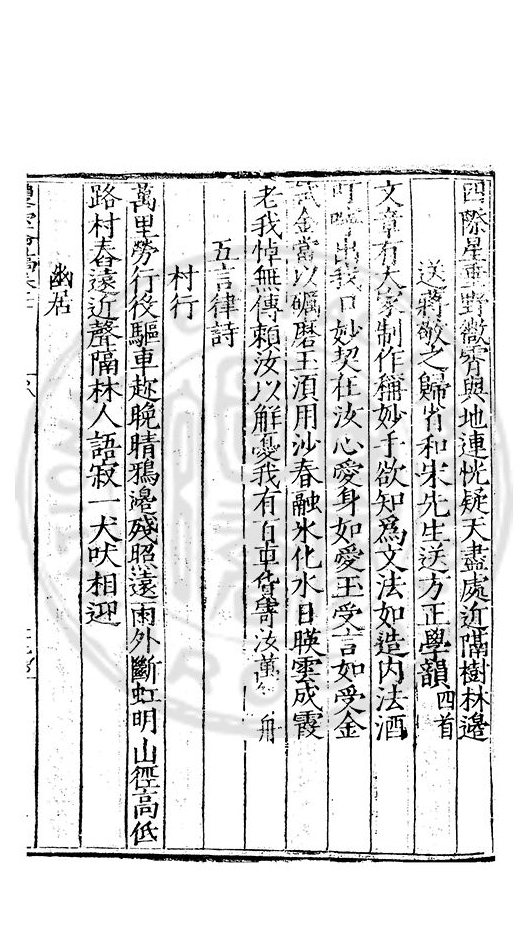 四際星垂野微霄與地連恍疑天盡處近隔樹林邊
送蔣敬之歸省和宋先生送方正學韻四首
文章有大家制作稱妙手欲知為文法如造内法酒
叮嚀出我口妙契在汝心愛身如愛玉受言如受金
金當以礪磨玉須用沙春融氷化水日暎雲成霞
老我悼無傳賴汝以解憂我有百車貨寄汝萬舟
五言律詩
村行
萬里勞行役驅車趂晚晴鴉邊殘照遠雨外斷虹明山徑高低
路村舂遠近聲隔林人語寂一犬吠相迎
幽居